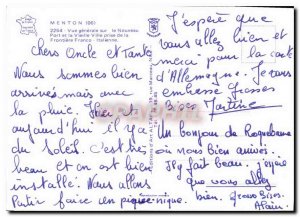 MENTON (06)
2254 - Vue générale sur le Nouveau
Port et la Vieille Ville prise de la
Frontière Franco - Italienne.
Chers Oncle et Tante
Nous sommes bien
arrivés mais avec
la pluie. Hier et
aujourd'hui il y a
du Soleil. c'est très
beau et on est bien
installé. Nous allons
Partir faire en pique-nique.
J'espère que
vous allez bien et
merci pour la carte
d'Allemagne. Je vous
embrasse Grosses
Bises Martine
Un bonjour de Roquebrune
où nous bien arrivés.
Il y fait beau. j'espère
que vous allez
bien. Gros Bises.
Alain.